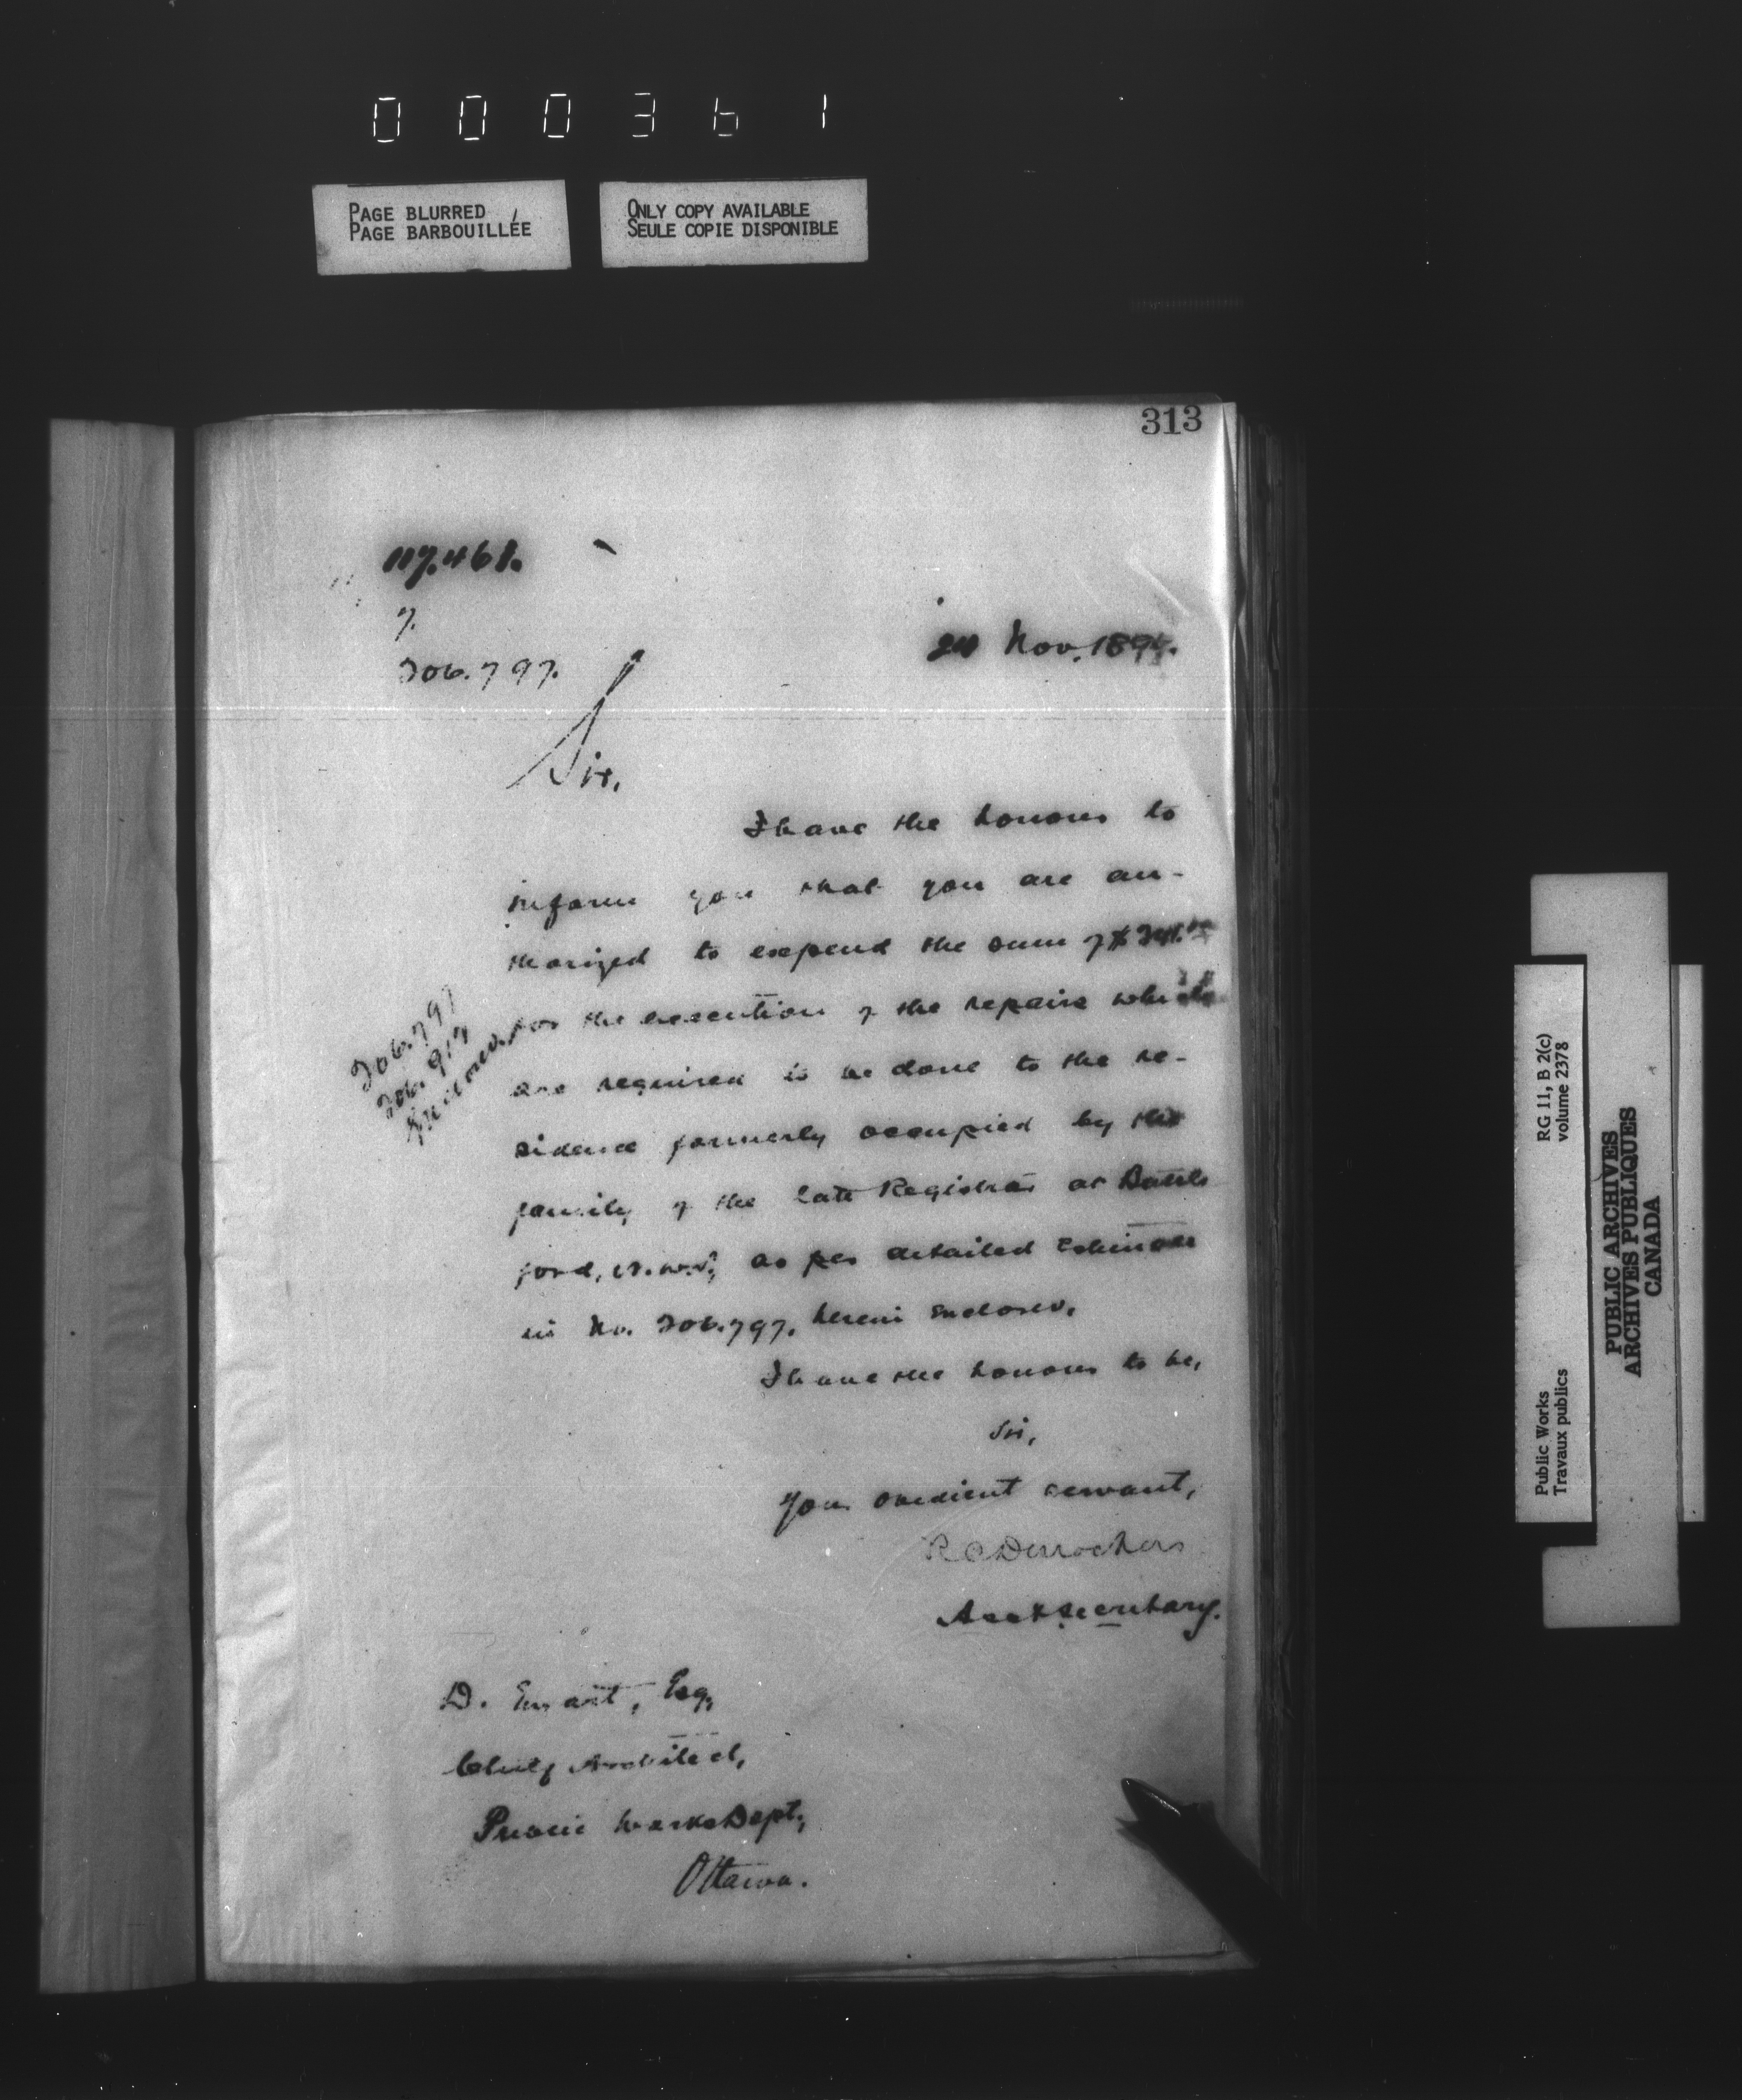 000361
PAGE BLURRED
PAGE BARBOUILLÉE
ONLY COPY AVAILABLE
SEULE COPIE DISPONIBLE
313
117.461.
7.
206.797.
Nov. 189
Sir,
I have the honour to
inform you that you are au-
thorized to expend the sum of $
for the execution of the repairs which
are required to be done to the re-
sidence formerly occupied by the
family of the late Registrar at Battle
ford, N.W.T., as per detailed Estimate
in No. 206.797, herein enclosed.
I have the honour to be,
Sir,
Your obedient servant,
R C Desrochers
Asst Secretary.
206.797
206.917
enclosed.
D. Ewart, Esq,
Chief Architect,
Public Works Dept,
Ottawa.
Public Works
Travaux publics
RG 11, B 2(c)
volume 2378
PUBLIC ARCHIVES
ARCHIVES PUBLIQUES
CANADA